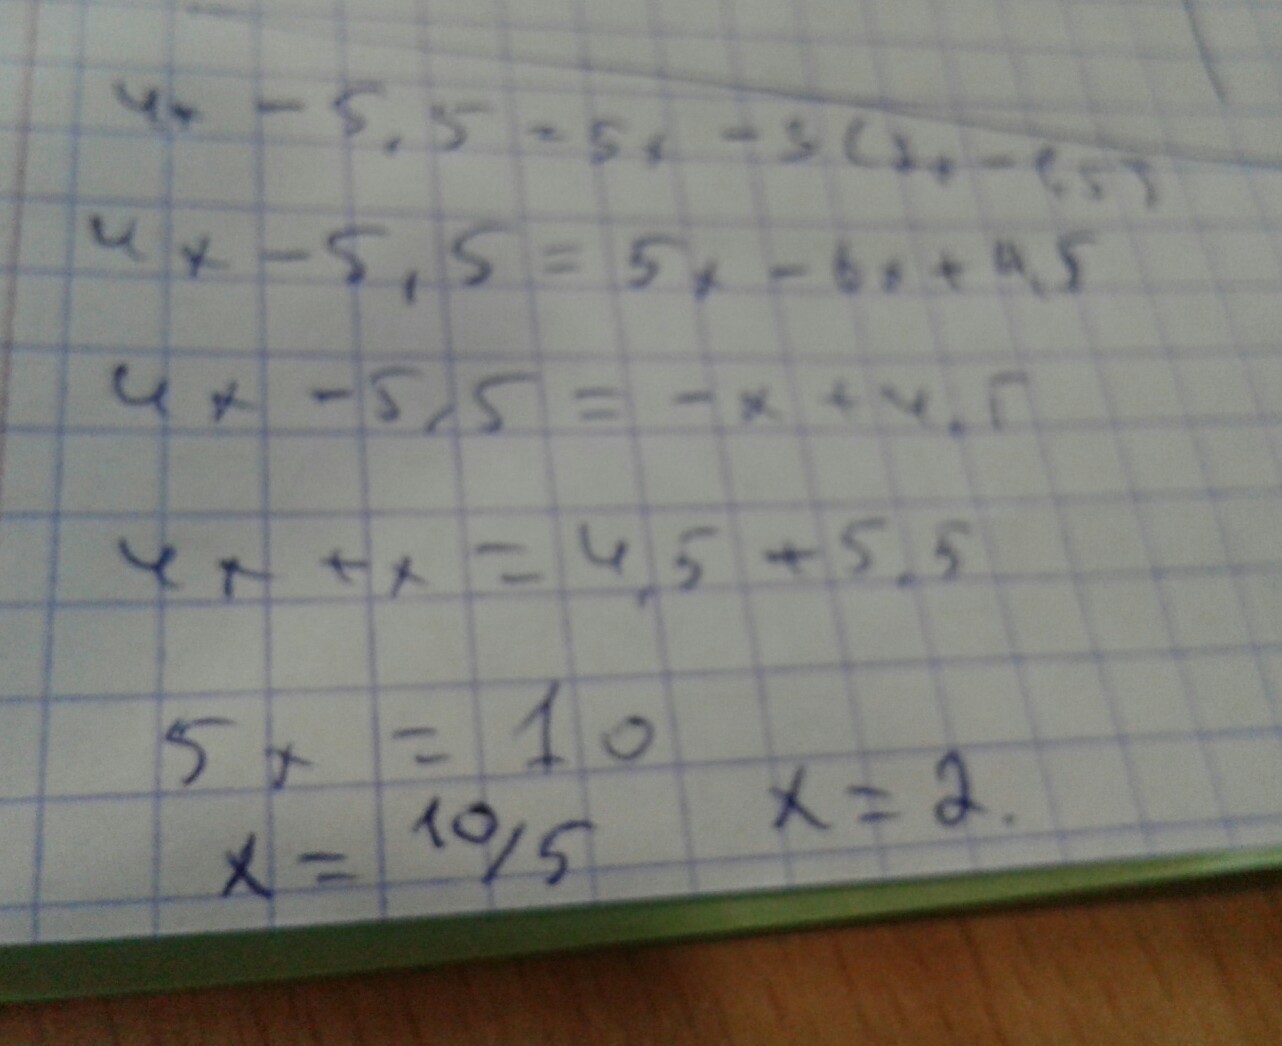 4x - 5,5 = 5x - 3(2x - 1,5)
4x - 5,5 = 5x - 6x + 4,5
4x - 5,5 = -x + 4,5
4x + x = 4,5 + 5,5
5x = 10
x = 10/5 x = 2.